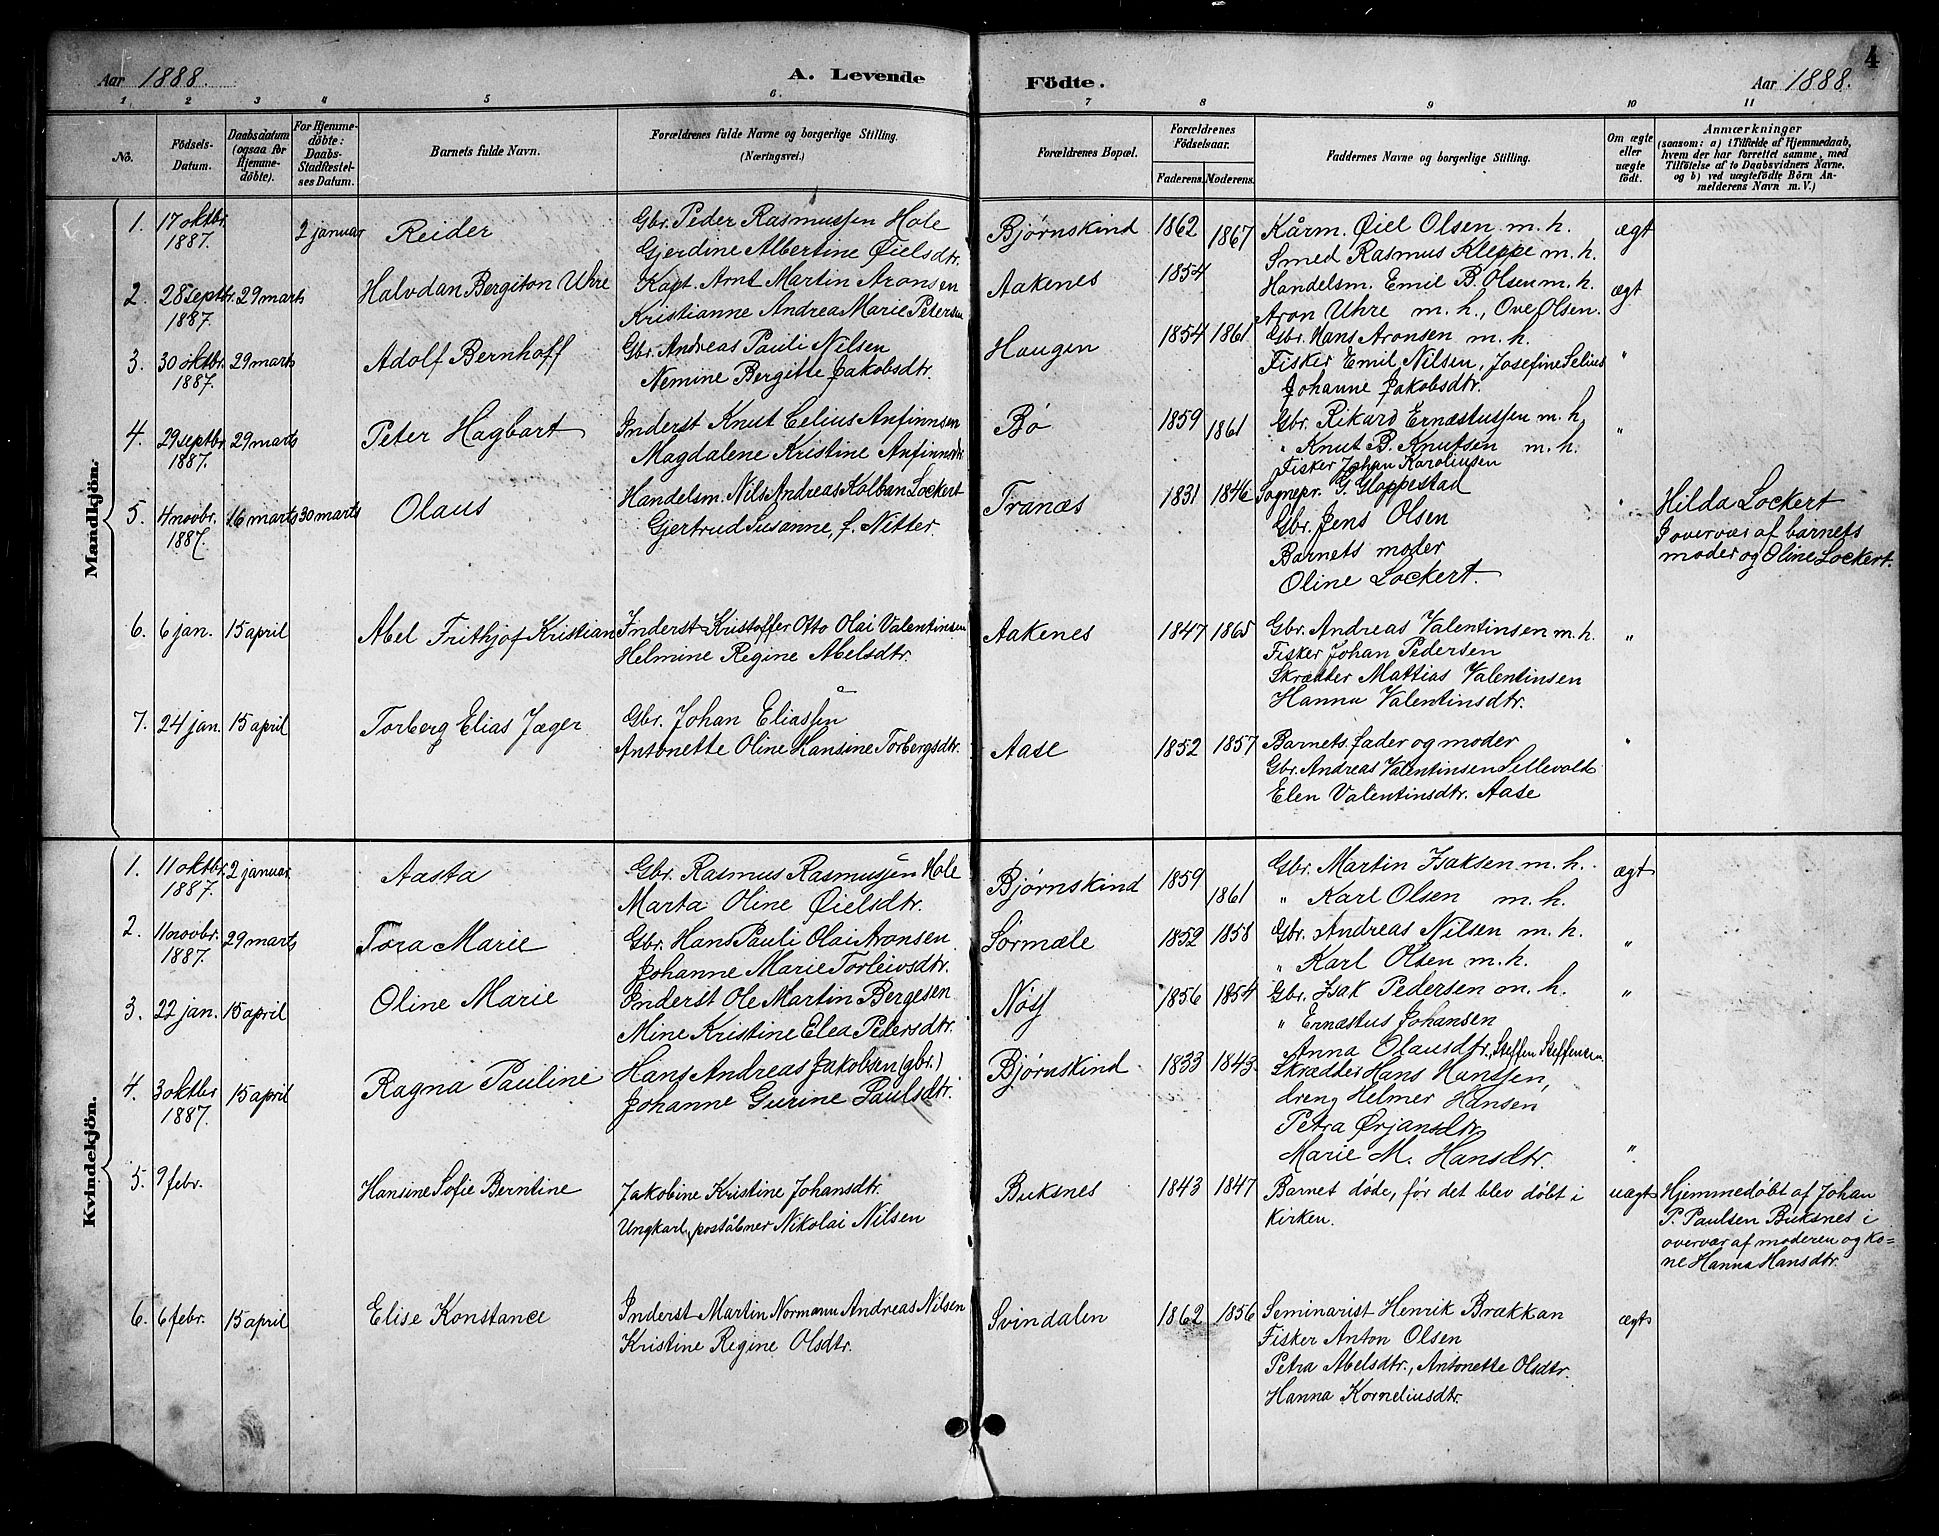 Aar 1888. A. Levende Födte. Aar 1888. 4
1 2 3 4 5 6. 7 8 9 10 11
No. Födsels-Datum. Daabsdatum (ogsaa for Hjemme-döbte). For Hjemme-döbte: Daabs-Stadfæstel-ses Datum. Barnets fulde Navn. Forældrenes fulde Navne og borgerlige Stilling. (Næringsvei.) Forældrenes Bopæl. Forældrenes Födselsaar. Faderens. Moderens. Faddernes Navne og borgerlige Stilling. Om ægte eller uægte födt. Anmærkninger (saasom: a) i Tilfælde af Hjemmedaab, hvem der har forrettet samme, med Tilföielse af to Daabsvidners Navne, og b) ved uægtefödte Börn An-melderens Navn m. V.)
Mandkjön.
1. 17 oktbr. 1887. 2 januar Reider Gbr. Peder Rasmussen Hole Bjørnskind 1862 1867 Kårm. Øiel Olsen m. h. ægt
Gjerdine Albertine Øielsdtr. Smed Rasmus Kleppe m. h.
2. 28 septbr. 1887. 29 marts Halvdan Bergiton Uhre Kapt. Arnt Martin Aronsen Aakenes 1854 Handelsm. Emil B. Olsen m. h. ægt
Kristianne Andrea Marie Petersen Aron Uhre m. h., Ove Olsen.
3. 30 oktbr. 1887. 29 marts Adolf Bernhoff Gbr. Andreas Pauli Nilsen Haugen 1854 1861 Gbr. Hans Aronsen m. h. "
Nemine Bergitte Jakobsdtr. Fisker Emil Nilsen, Josefine Selius
Johanne Jakobsdtr.
4. 29 septbr. 1887. 29 marts Peter Hagbart Inderst Knut Celius Anfinnsen Bø 1859 1861 Gbr. Rikard Ernæstussen m. h. "
Magdalene Kristine Anfinnsdtr " Knut B. Knutsen m. h.
Fisker Johan Karoliusen
5. 4 novbr. 1887. 16 marts 30 marts Olaus Handelsm. Nils Andreas Kolban Lockert Tranæs 1831 1846 Sognepr. G. Gloppestad " Hilda Lockert
Gjertrud Susanne, f. Nitter Gbr. Jens Olsen I overvær af barnets
Barnets moder moder og Oline Lockert.
Oline Lockert.
6. 6 jan. 15 april Abel Frithjof Kristian Inderst Kristoffer Otto Olai Valentinsen Aakenes 1847 1865 Gbr. Andreas Valentinsen m. h. "
Helmine Regine Abelsdtr. Fisker Johan Pedersen
Skrædder Mattias Valentinsen
Hanna Valentinsdtr.
7. 24 jan. 15 april Torberg Elias Jæger Gbr. Johan Eliassen
Antonette Oline Hansine Torbergsdtr. Aase 1852 1857 Barnets fader og moder "
Gbr. Andreas Valentinsen Sellevold
Elen Valentinsdtr. Aase
Kvindekjön.
1. 11 oktbr. 1887. 2 januar Aasta Gbr. Rasmus Rasmussen Hole Bjørnskind 1859 1861 Gbr. Martin Isaksen m. h. ægt
Marta Oline Øielsdtr. " Karl Olsen m. h.
2. 11 novbr. 1887. 29 marts Tora Marie Gbr. Hans Pauli Olai Aronsen Sørmæle 1852 1858 Gbr. Andreas Nilsen m. h. "
Johanne Marie Torleivsdtr. " Karl Olsen m. h.
3. 22 jan. 15 april Oline Marie Inderst Ole Martin Bergesen Nøss 1856 1854 Gbr. Isak Pedersen m. h. "
Mine Kristine Elea Pedersdtr. " Ernæstus Johansen
Anna Olausdtr., Steffen Steffensen
4. 3 oktbr 1887. 15 april Ragna Pauline Hans Andreas Jakobsen (gbr.) Bjørnskind 1833 1843 Skrædder Hans Hanssen,
Johanne Gurine Paulsdtr. dreng Helmer Hansen
Petra Ørjansdtr
Marie M. Hansdtr. "
5. 9 febr. Hansine Sofie Berntine Jakobine Kristine Johansdtr. Buksnes 1843 1847 Barnet døde, før det blev døbt i uægt Hjemmedøbt af Johan
Ungkarl, poståbner Nikolai Nilsen kirken. P. Paulsen Buksnes i
overvær af moderen og ko=
ne Hanna Hansdtr.
6. 6 febr. 15 april Elise Konstance Inderst Martin Normann Andreas Nilsen Svindalen 1862 1856 Seminarist Henrik Brakkan ægt
Kristine Regine Olsdtr. Fisker Anton Olsen
Petra Abelsdtr., Antonette Olsdtr.
Hanna Korneliusdtr.